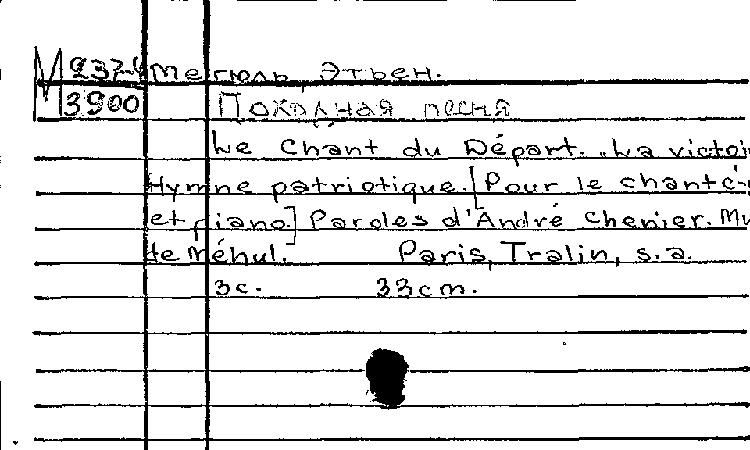 М 237-4 Мегюль, Этьен.
3900 Походная песня
Le Chant du Départ. "La victoi
Hymne patriotique. [Pour le chant
et piano.] Paroles d'André Chenier. Mu
de Méhul. Paris, Tralin, s.a.
3c. 33cm.